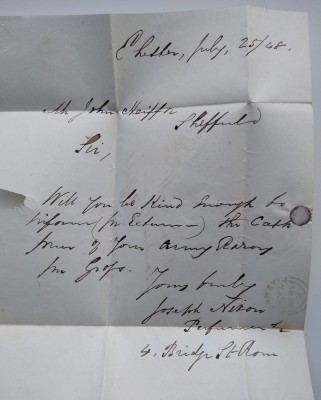 Chester, July, 25/48.
Mr John Heiffor
Sheffield
Sir,
Will you be Kind Enough to
inform (pr Return) the Cash
price of your Army Razors
per Gross.
Yours truly
Joseph Nixon
Perfumer &c
4. Bridge St Row